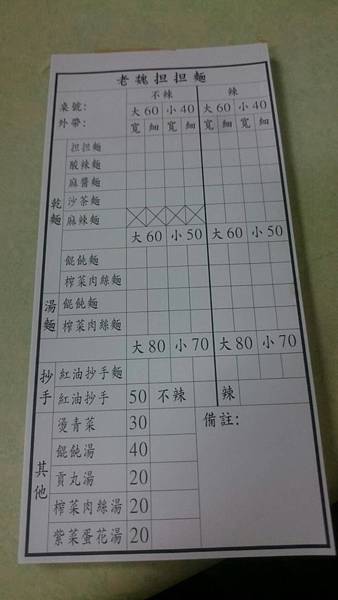 老魏担担麵
桌號：
外帶：
不辣 辣
大60 小40 大60 小40
寬 細 寬 細 寬 細 寬 細
乾麵
担担麵
酸辣麵
麻醬麵
沙茶麵
麻辣麵
大60 小50 大60 小50
餛飩麵
榨菜肉絲麵
湯麵
餛飩麵
榨菜肉絲麵
大80 小70 大80 小70
抄手
紅油抄手麵
紅油抄手 50 不辣 辣
其他
燙青菜 30 備註：
餛飩湯 40
貢丸湯 20
榨菜肉絲湯 20
紫菜蛋花湯 20